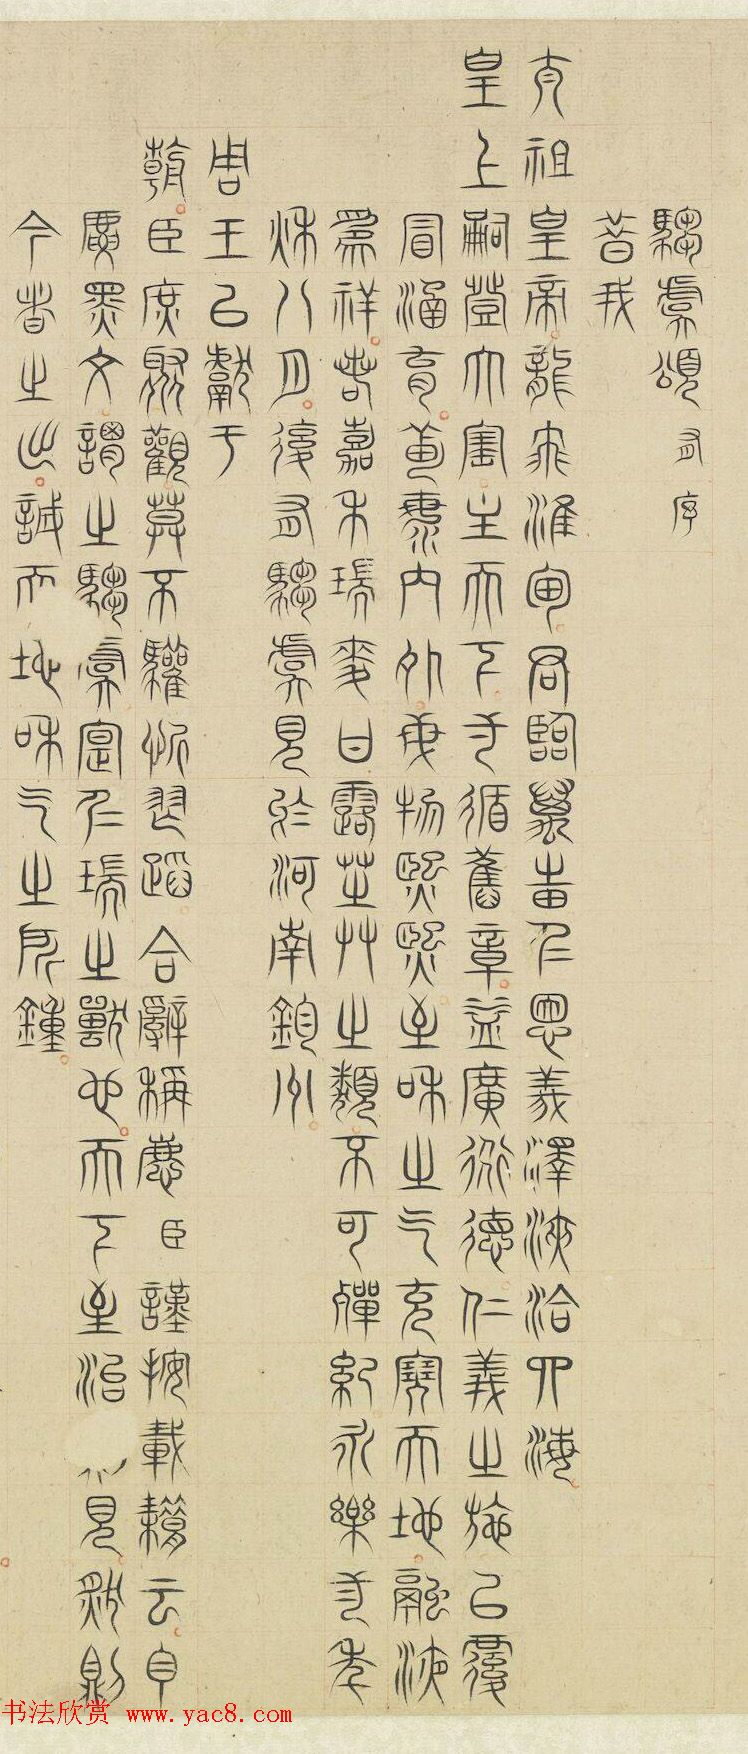 騶虞頌 有序
昔我
太祖皇帝龍飛淮甸君臨萬邦仁恩義澤浹洽四海
皇上嗣登大寶主天下循舊章益廣衍德仁義之施以覆
冒涵育薰烝內外揚熙熙至和之气充實天地融浹
為祥若嘉禾瑞麥甘露芝艸之類不可殫紀永樂二年
秋八月復有騶虞見於河南鈞州
周王以獻于
朝臣庶聚觀莫不驩忻蹈合辭稱慶臣謹按載籍云白
質黑文謂之騶虞寔仁瑞之獸也天下至治見然則
今者之出誠天地和气之所鍾
书法欣赏 www.yac8.com